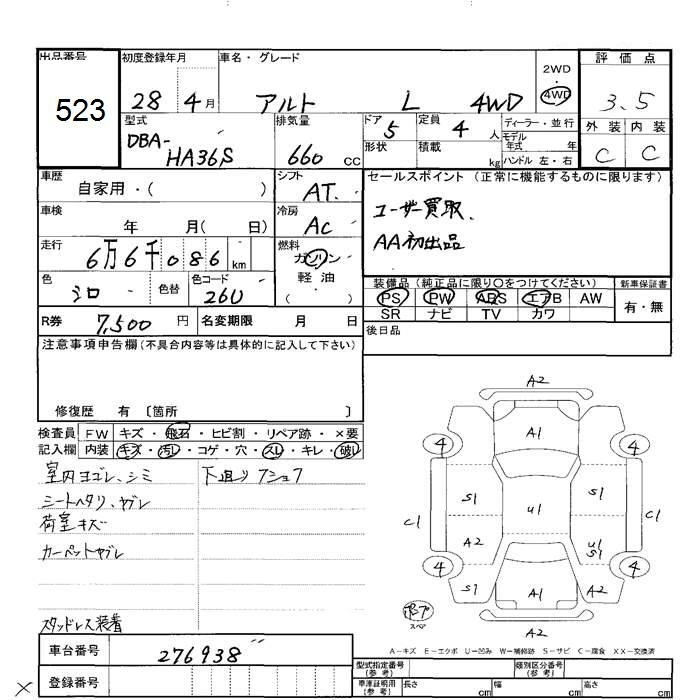 出品番号 初度登録年月 車名・グレード 2WD 評価点
523 28 4月 アルト L 4WD 4WD 3.5
型式 排気量 ドア 定員 ディーラー・並行 外装 内装
DBA-HA36S 660 CC 5 4人 モデル年式 年 C C
形状 積載 kg ハンドル 左・右
車歴 シフト セールスポイント (正常に機能するものに限ります)
自家用・( ) AT
車検 冷房 ユーザー買取、
年 月( 日) AC AA初出品
走行 燃料
6万6千086km ガソリン
軽油
( )
色 色替 色コード 装備品 (純正品に限り〇をつけてください) 新車保証書
シロ 26U PS PW ABS エアB AW 有・無
SR ナビ TV カワ
R券 7,500 円 名変期限 月 日 後日品
注意事項申告欄 (不具合内容等は具体的に記入して下さい)
修復歴 有 〔箇所 〕
検査員 FW キズ・飛石・ヒビ割・リペア跡・×要
記入欄 内装 キズ・汚レ・コゲ・穴・スレ・キレ・破レ
室内ヨゴレ、シミ 下廻りフショク
シートヘタリ、ヤブレ
荷室キズ
カーペットヤブレ
スタッドレス装着
A2
A1
4 4
S1 S1
C1 U1 C1
A2 U1 S1
4 4
S1 A1 A2
スペア
A2
A−キズ E−エクボ U−凹み W−補修跡 S−サビ C−腐食 XX−交換済
車台番号 276938
登録番号
型式指定番号(参考) 類別区分番号(参考)
車庫証明用(参考) 長さ cm 幅 cm 高さ cm